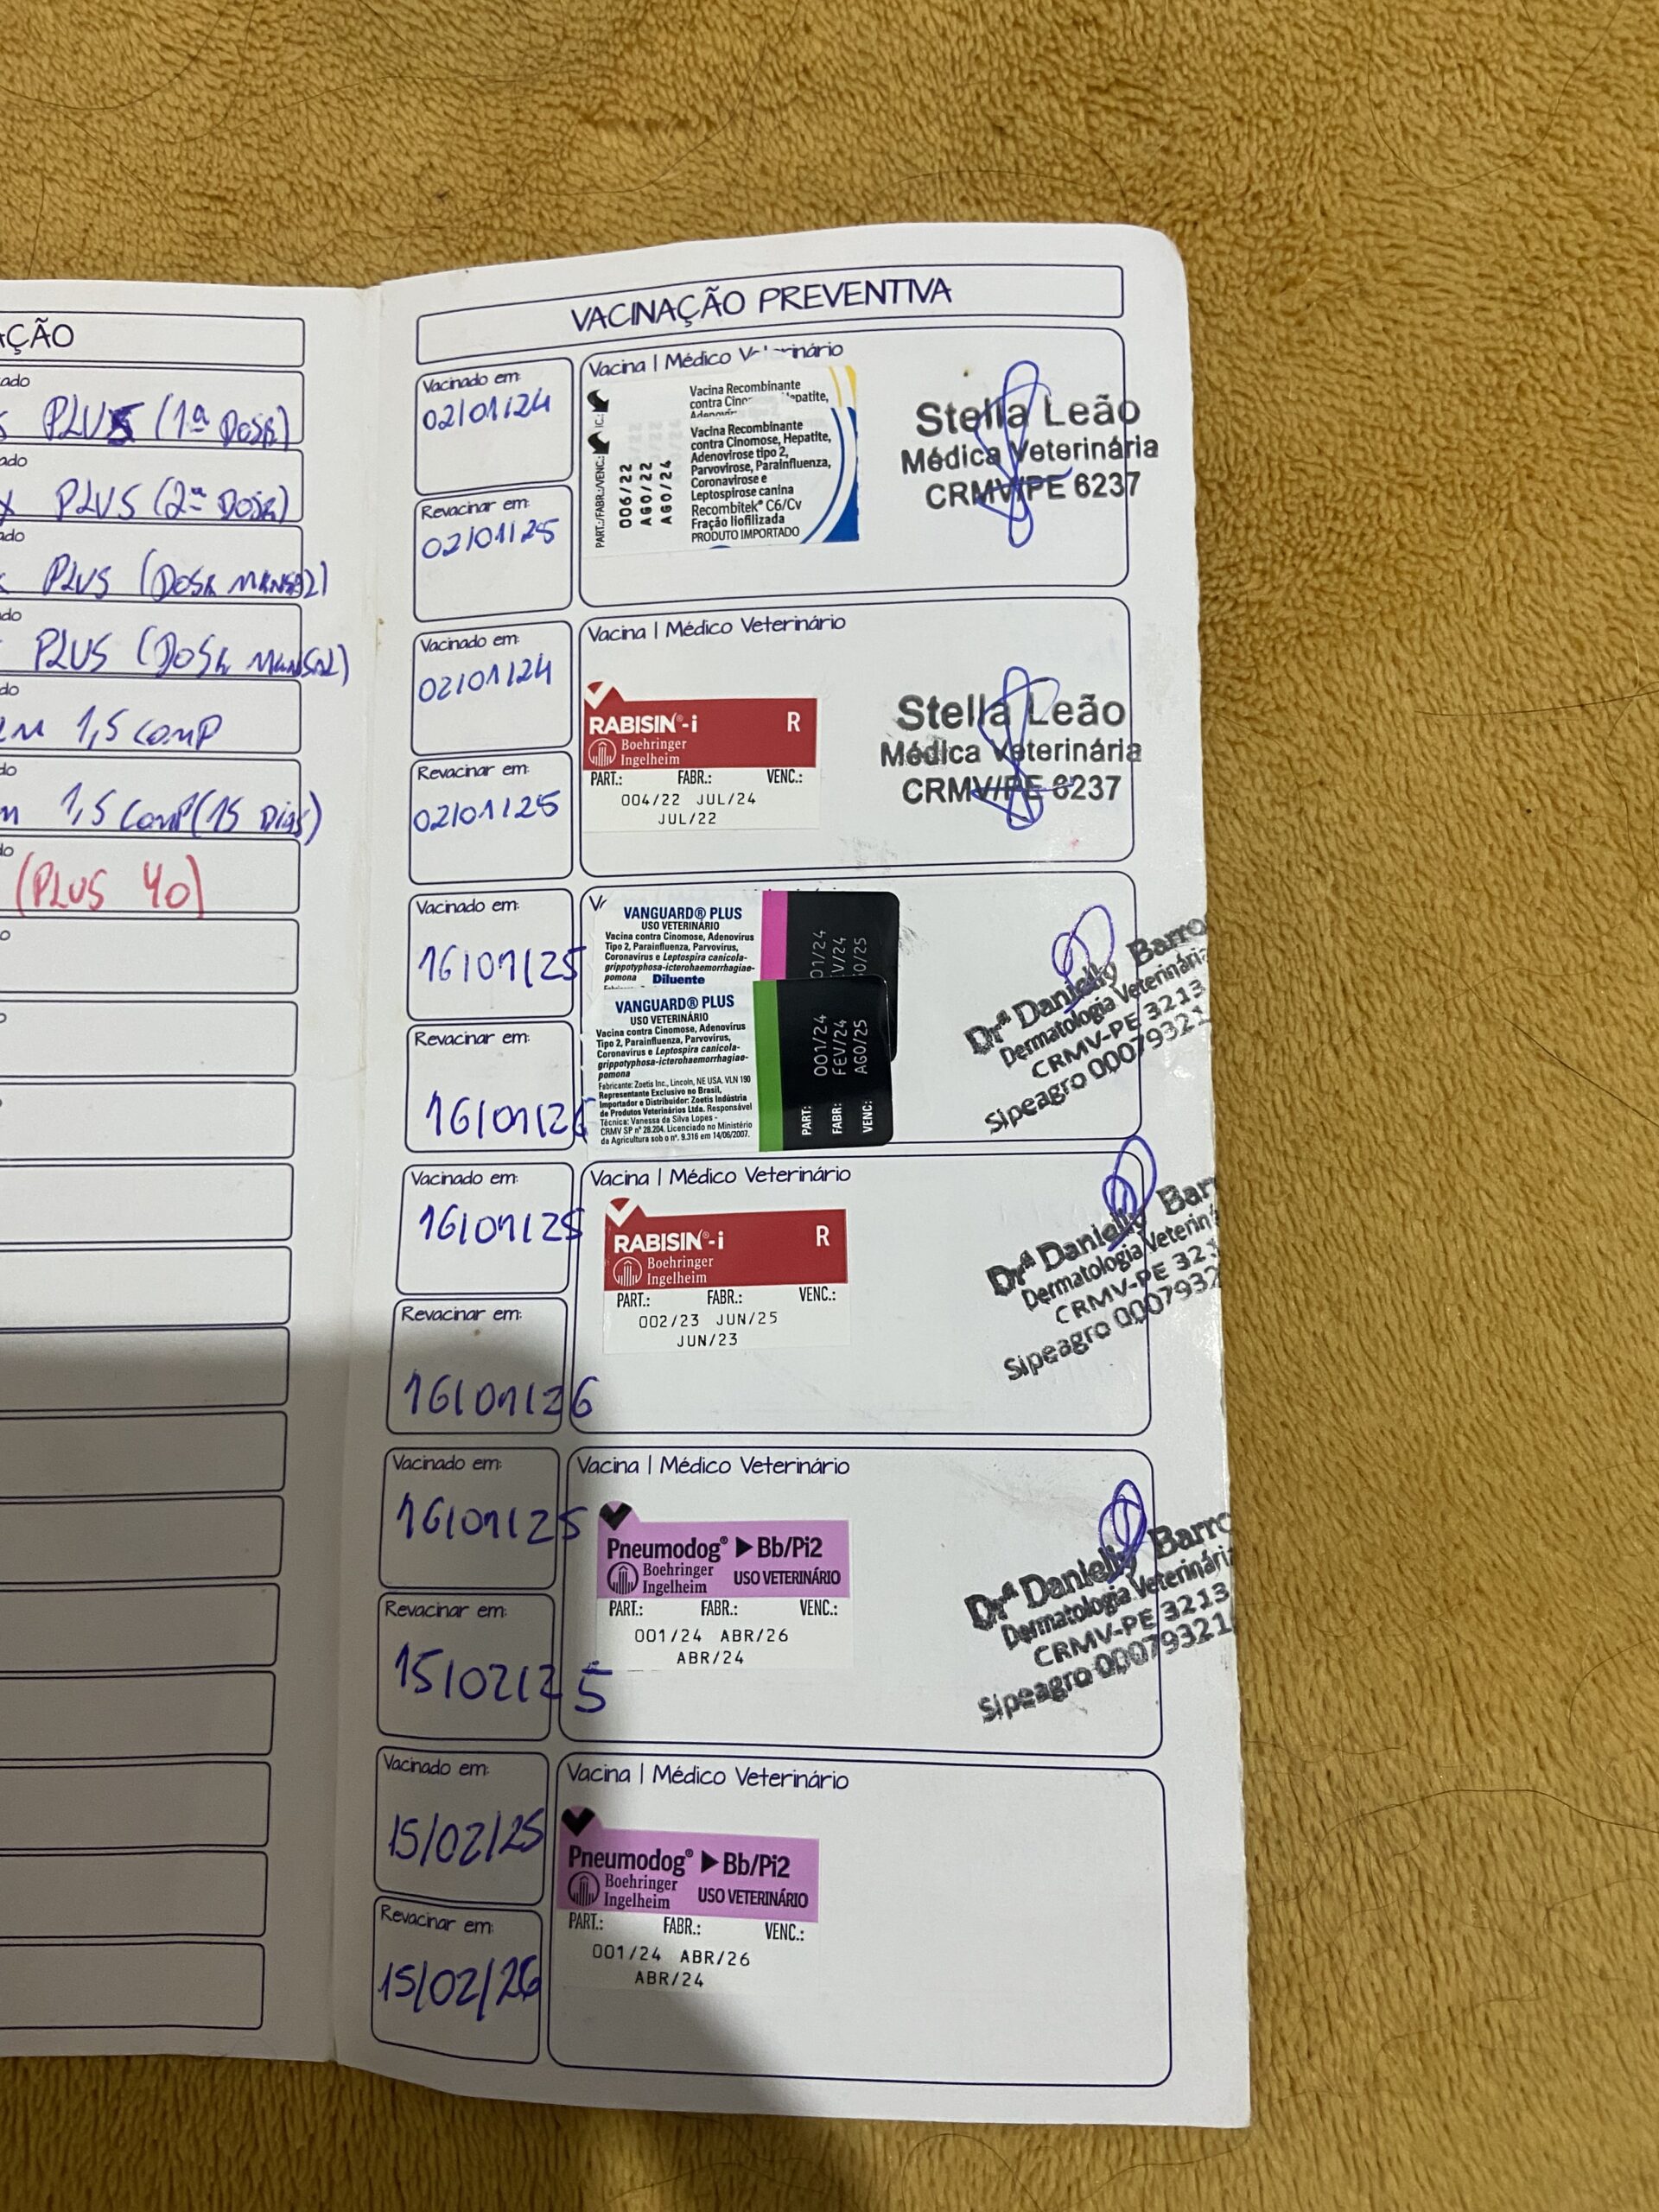 AÇÃO
ado
PLUS (1ª DOSE)
ado
PLUS (2ª DOSE)
ado
PLUS (DOSE MENSAL)
do
PLUS (DOSE MENSAL)
do
1,5 COMP
do
1,5 COMP (15 DIAS)
do
(PLUS 40)
o
VACINAÇÃO PREVENTIVA
Vacinado em:
02/01/24
Revacinar em:
02/01/25
Vacina | Médico Veterinário
Vacina Recombinante
contra Cinomose, Hepatite,
PART.:/FABR.:/VENC.:
006/22
AGO/22
AGO/24
Vacina Recombinante
contra Cinomose, Hepatite,
Adenovirose tipo 2,
Parvovirose, Parainfluenza,
Coronavirose e
Leptospirose canina
Recombitek® C6/Cv
Fração liofilizada
PRODUTO IMPORTADO
Stella Leão
Médica Veterinária
CRMV/PE 6237
Vacinado em:
02/01/24
Revacinar em:
02/01/25
Vacina | Médico Veterinário
RABISIN®-i R
Boehringer
Ingelheim
PART.: FABR.: VENC.:
004/22 JUL/24
JUL/22
Stella Leão
Médica Veterinária
CRMV/PE 6237
Vacinado em:
16/01/25
Revacinar em:
16/01/26
VANGUARD® PLUS
USO VETERINÁRIO
Vacina contra Cinomose, Adenovírus
Tipo 2, Parainfluenza, Parvovírus,
Coronavírus e Leptospira canicola-
grippotyphosa-icterohaemorrhagiae-
pomona Diluente
01/24
V/24
O/25
VANGUARD® PLUS
USO VETERINÁRIO
Vacina contra Cinomose, Adenovírus
Tipo 2, Parainfluenza, Parvovírus,
Coronavírus e Leptospira canicola-
grippotyphosa-icterohaemorrhagiae-
pomona
Fabricante: Zoetis Inc., Lincoln, NE USA, VLN 190
Representante Exclusivo no Brasil,
Importador e Distribuidor: Zoetis Indústria
de Produtos Veterinários Ltda. Responsável
Técnica: Vanessa da Silva Lopes -
CRMV SP nº 28.204. Licenciado no Ministério
da Agricultura sob o nº. 9.316 em 14/06/2007.
PART: 001/24
FABR: FEV/24
VENC: AGO/25
Drª Danielly Barro
Dermatologia Veterinári
CRMV-PE 3213
Sipeagro 00079321
Vacinado em:
16/01/25
Revacinar em:
16/01/26
Vacina | Médico Veterinário
RABISIN®-i R
Boehringer
Ingelheim
PART.: FABR.: VENC.:
002/23 JUN/25
JUN/23
Drª Danielly Bar
Dermatologia Veterin
CRMV-PE 321
Sipeagro 0007932
Vacinado em:
16/01/25
Revacinar em:
15/02/25
Vacina | Médico Veterinário
Pneumodog® ▶ Bb/Pi2
Boehringer
Ingelheim USO VETERINÁRIO
PART.: FABR.: VENC.:
001/24 ABR/26
ABR/24
Drª Danielly Barro
Dermatologia Veterinári
CRMV-PE 3213
Sipeagro 00079321
Vacinado em:
15/02/25
Revacinar em:
15/02/26
Vacina | Médico Veterinário
Pneumodog® ▶ Bb/Pi2
Boehringer
Ingelheim USO VETERINÁRIO
PART.: FABR.: VENC.:
001/24 ABR/26
ABR/24